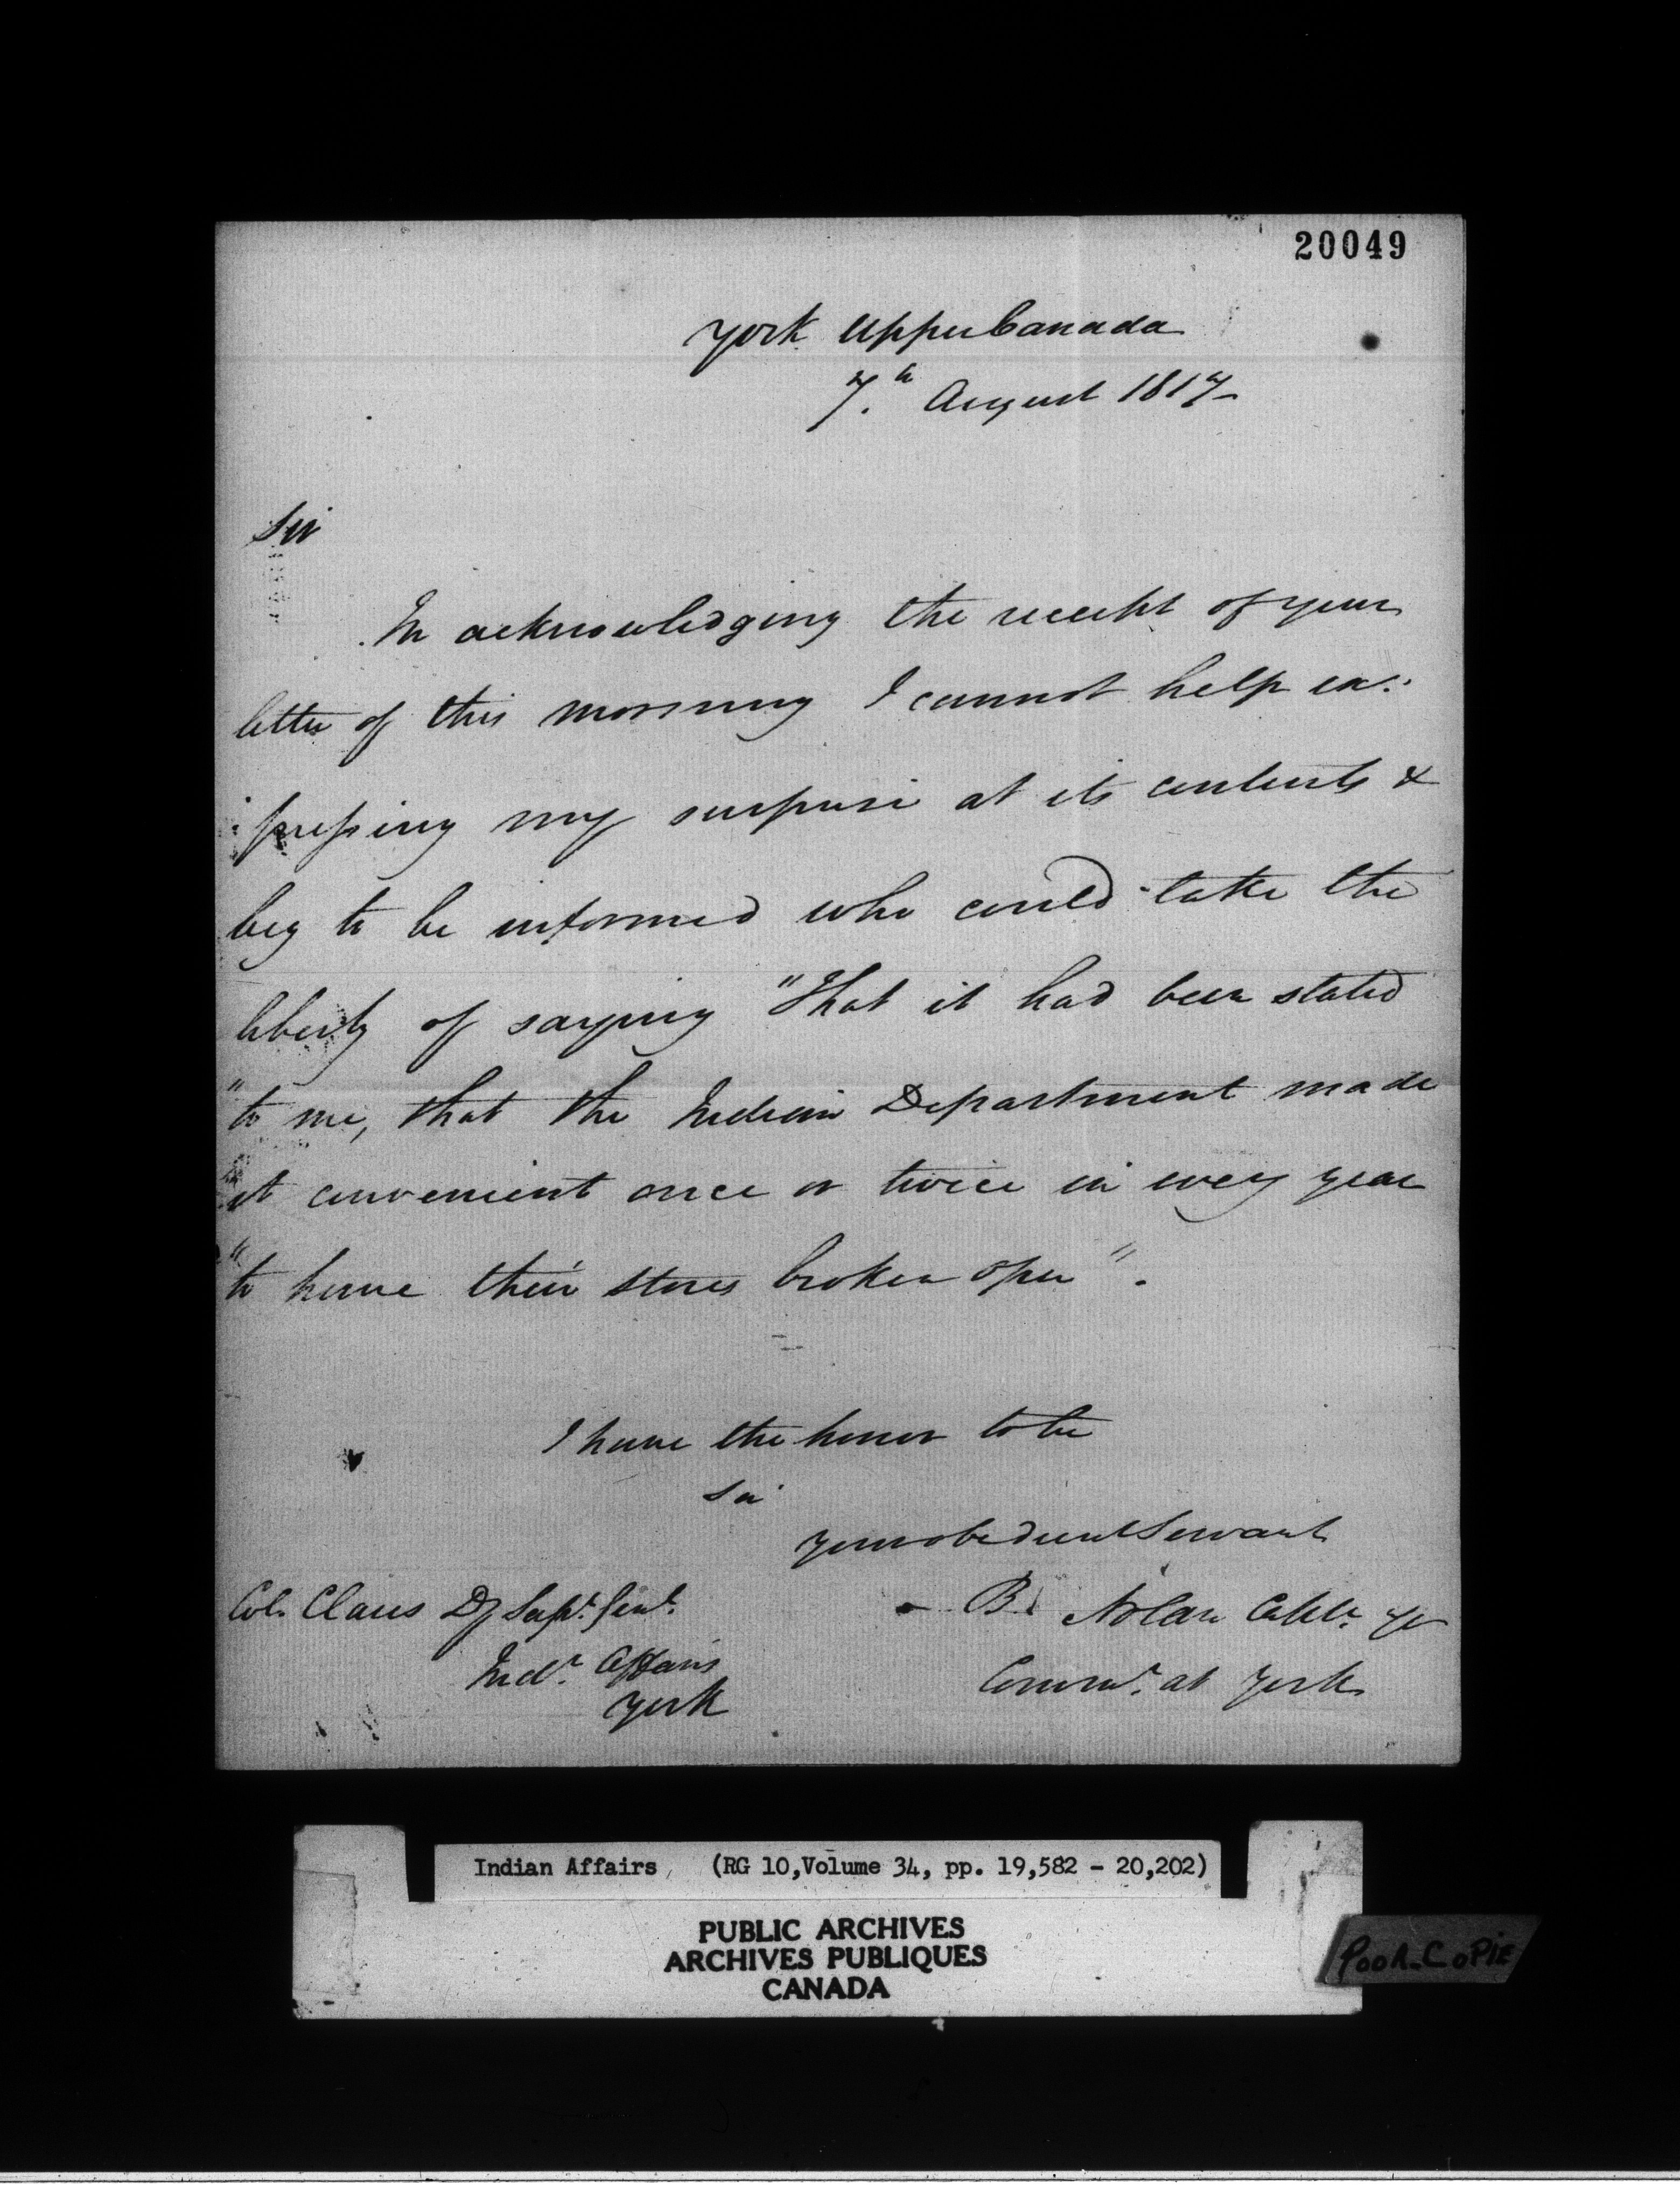 20049
York Upper Canada
7.th August 1817
Sir
In acknowledging the receipt of your
letter of this morning I cannot help ex:
:pressing my surprise at its contents &
beg to be informed who could take the
liberty of saying "That it had been stated
"to me, that the Indian Department made
"it convenient once or twice in every year
"to have their stores broken open".
I have the honor to be
Sir
Your obedient Servant
B. Nolan
Comm.t at York
Col. Claus Dy Supt. Genl.
Indn. Affairs
York
Indian Affairs (RG 10, Volume 34, pp. 19,582 - 20,202)
PUBLIC ARCHIVES
ARCHIVES PUBLIQUES
CANADA
POOR_COPIE